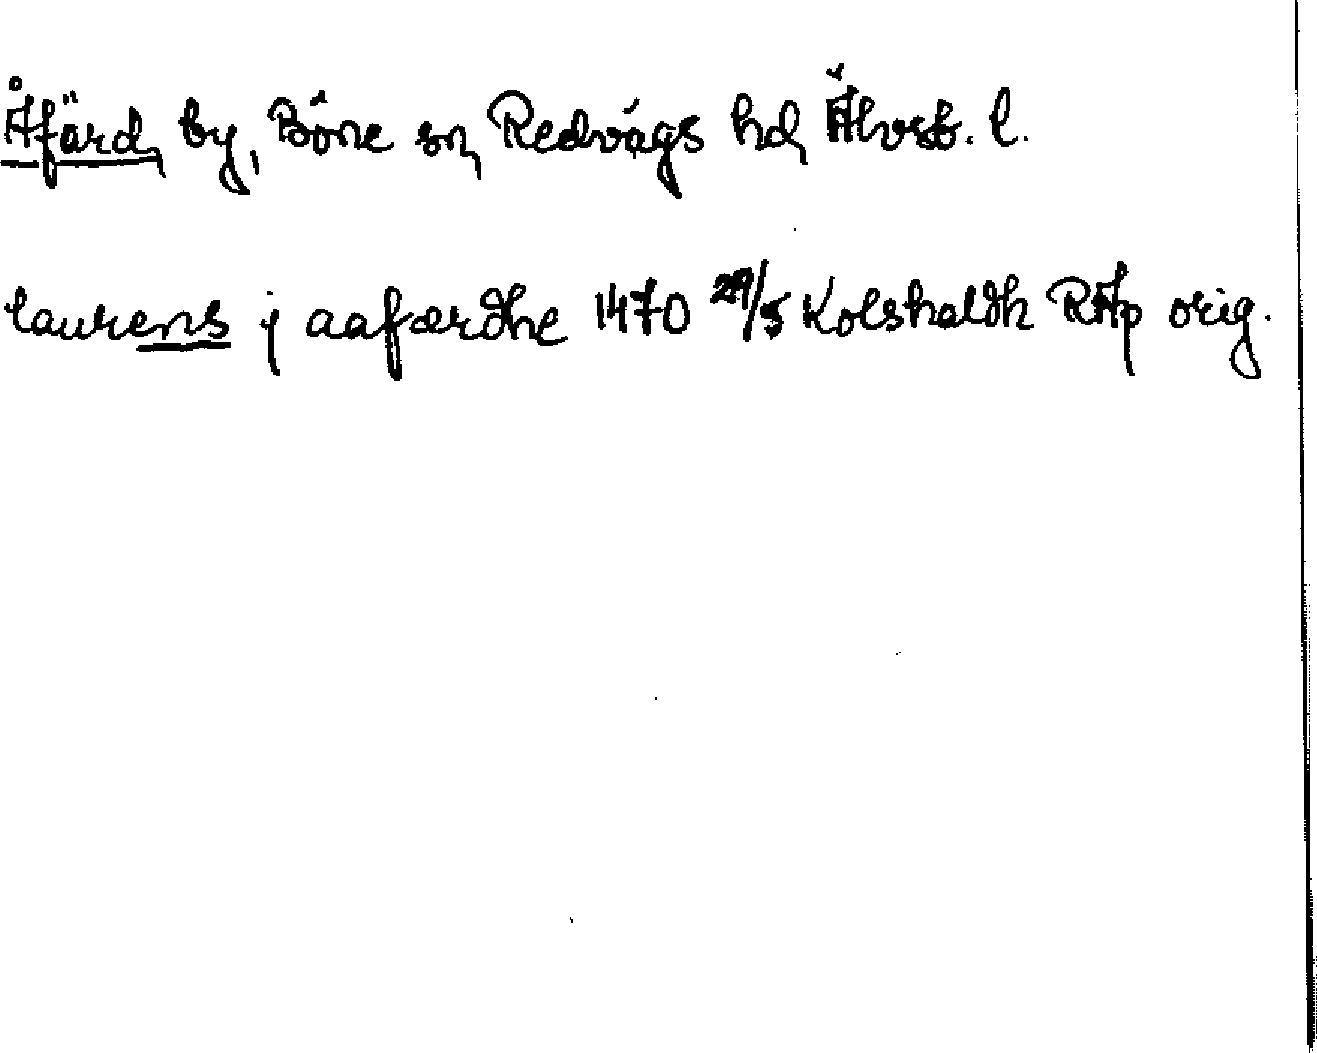 Åfärd, by, Böne sn, Redvägs hd, Älvsb. l.
laurens j aafærdhe 1470 29/5 Kolshaldh RAp orig.